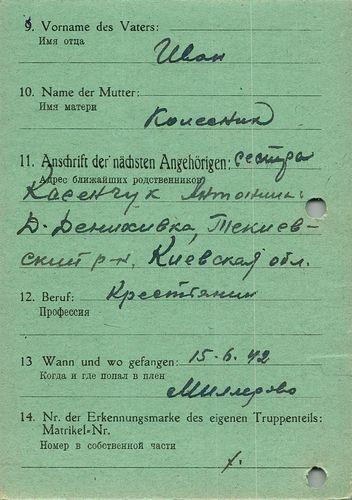 9. Vorname des Vaters:
Имя отца
Иван
10. Name der Mutter:
Имя матери
Колесник
11. Anschrift der nächsten Angehörigen: сестра
Адрес ближайших родственников
Касенчук Антонин.
Д. Денихивка, Текиев-
ский р-н, Киевская обл.
12. Beruf: Крестьянин
Профессия
13 Wann und wo gefangen: 15.6.42
Когда и где попал в плен
Миллерово
14. Nr. der Erkennungsmarke des eigenen Truppenteils:
Matrikel-Nr.
Номер в собственной части